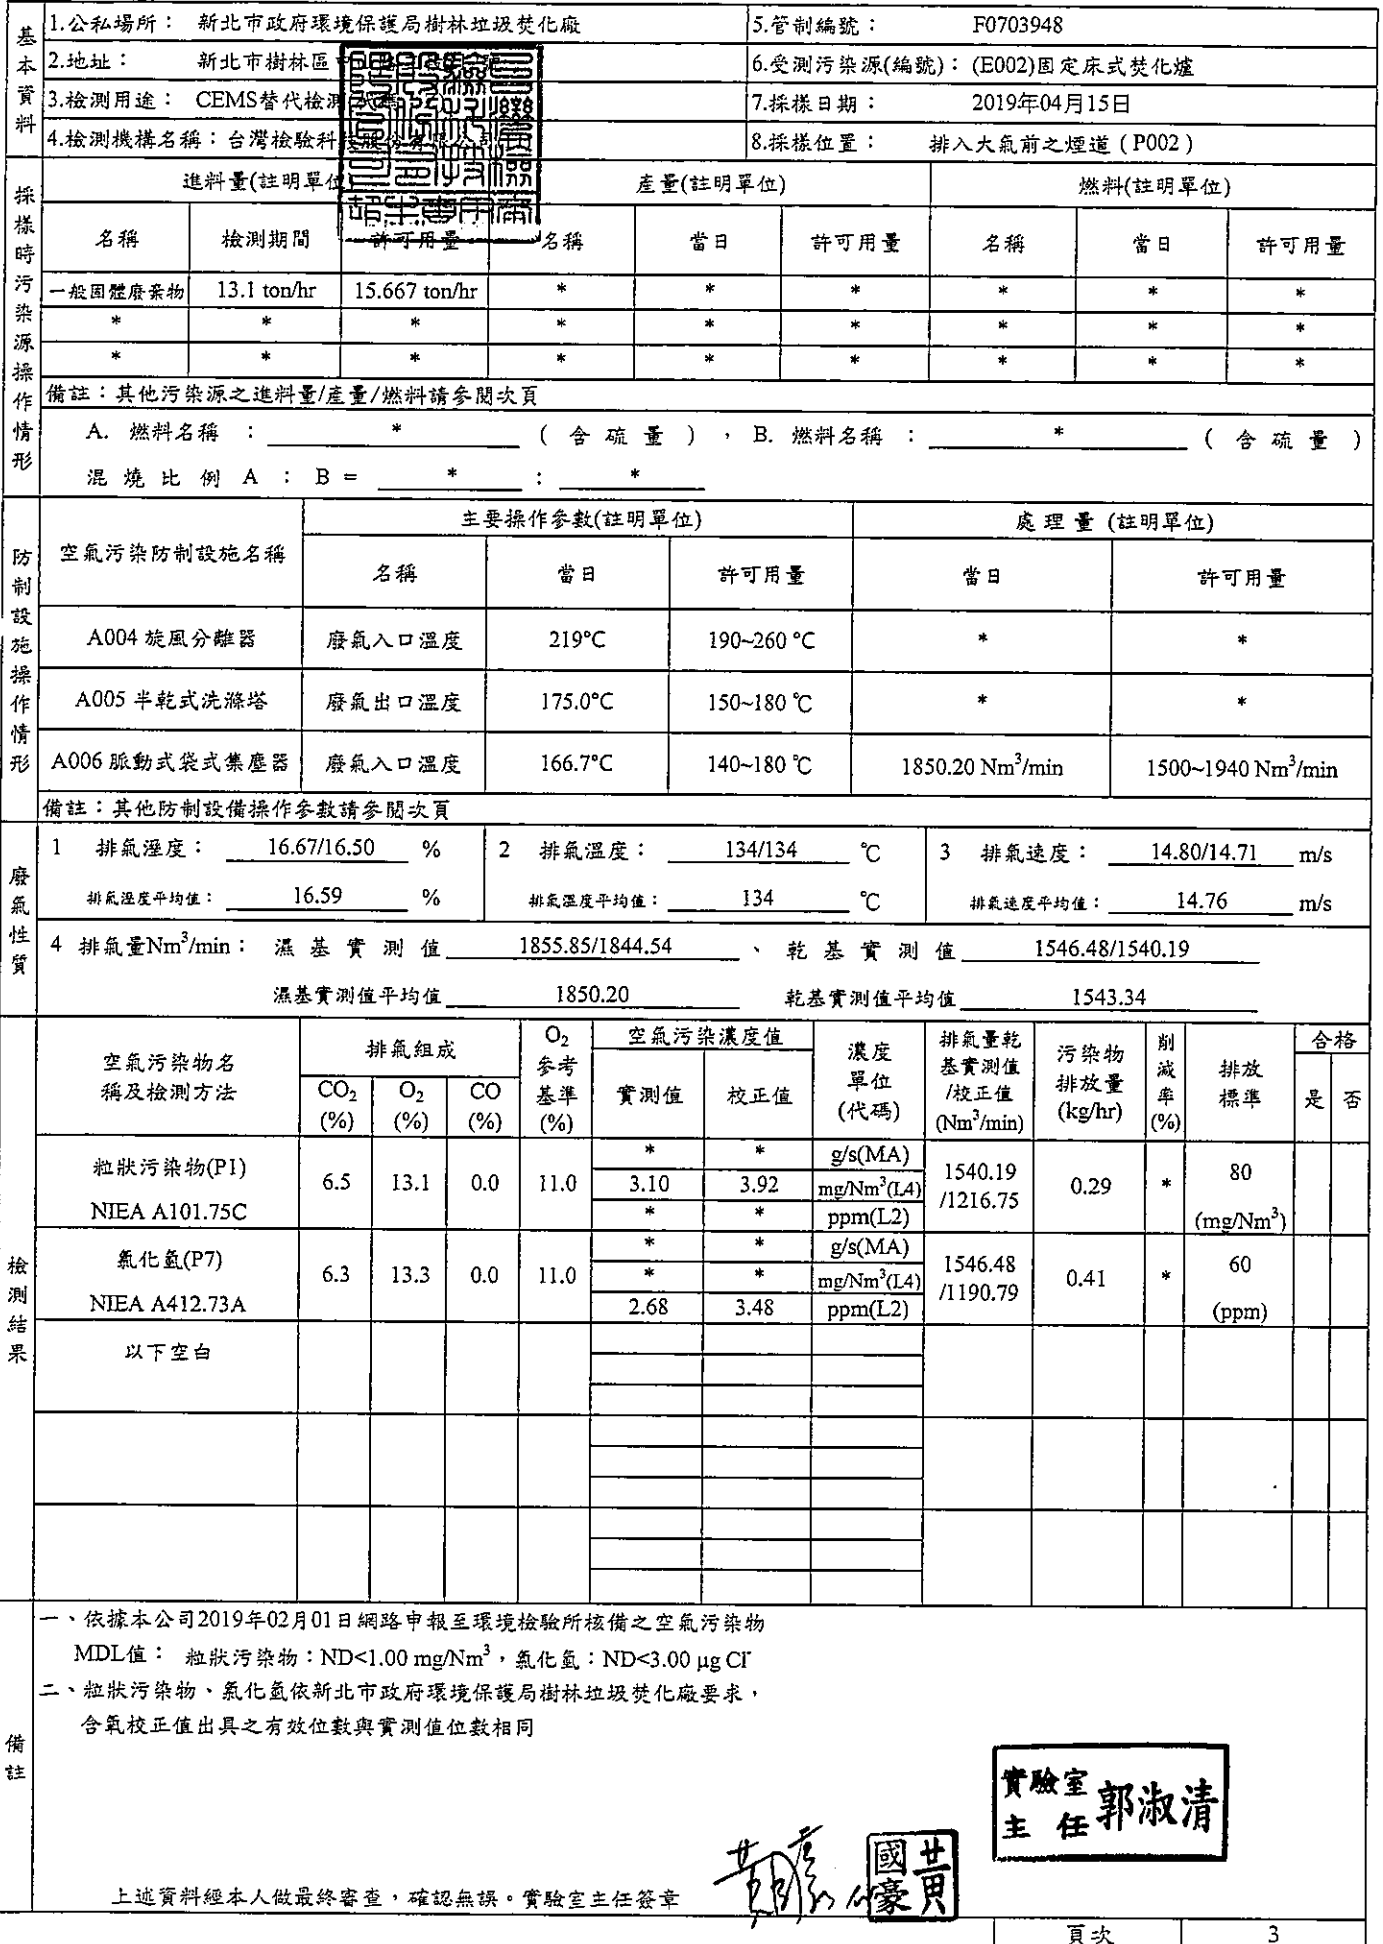 基本資料
1.公私場所： 新北市政府環境保護局樹林垃圾焚化廠
5.管制編號： F0703948
2.地址： 新北市樹林區
6.受測污染源(編號)： (E002)固定床式焚化爐
3.檢測用途： CEMS替代檢測
7.採樣日期： 2019年04月15日
4.檢測機構名稱：台灣檢驗科
8.採樣位置： 排入大氣前之煙道 ( P002 )
採樣時污染源操作情形
進料量(註明單位 產量(註明單位) 燃料(註明單位)
名稱 檢測期間 許可用量 名稱 當日 許可用量 名稱 當日 許可用量
一般固體廢棄物 13.1 ton/hr 15.667 ton/hr * * * * * *
* * * * * * * * *
* * * * * * * * *
備註：其他污染源之進料量/產量/燃料請參閱次頁
A. 燃料名稱 ： * ( 含 硫 量 ) ， B. 燃料名稱 ： * ( 含 硫 量 )
混 燒 比 例 A ： B = * ： *
防制設施操作情形
空氣污染防制設施名稱 主要操作參數(註明單位) 處 理 量 (註明單位)
名稱 當日 許可用量 當日 許可用量
A004 旋風分離器 廢氣入口溫度 219°C 190~260 °C * *
A005 半乾式洗滌塔 廢氣出口溫度 175.0°C 150~180 ℃ * *
A006 脈動式袋式集塵器 廢氣入口溫度 166.7°C 140~180 ℃ 1850.20 Nm³/min 1500~1940 Nm³/min
備註：其他防制設備操作參數請參閱次頁
廢氣性質
1 排氣溼度： 16.67/16.50 % 2 排氣溫度： 134/134 ℃ 3 排氣速度： 14.80/14.71 m/s
排氣溼度平均值： 16.59 % 排氣溫度平均值： 134 ℃ 排氣速度平均值： 14.76 m/s
4 排氣量Nm³/min： 濕 基 實 測 值 1855.85/1844.54 、 乾 基 實 測 值 1546.48/1540.19
濕基實測值平均值 1850.20 乾基實測值平均值 1543.34
檢測結果
空氣污染物名稱及檢測方法 排氣組成 O₂參考基準(%) 空氣污染濃度值 濃度單位(代碼) 排氣量乾基實測值/校正值(Nm³/min) 污染物排放量(kg/hr) 削減率(%) 排放標準 合格
CO₂(%) O₂(%) CO(%) 實測值 校正值 是 否
粒狀污染物(P1) NIEA A101.75C 6.5 13.1 0.0 11.0 1540.19/1216.75 0.29 * 80 (mg/Nm³)
* * g/s(MA)
3.10 3.92 mg/Nm³(L4)
* * ppm(L2)
氯化氫(P7) NIEA A412.73A 6.3 13.3 0.0 11.0 1546.48/1190.79 0.41 * 60 (ppm)
* * g/s(MA)
* * mg/Nm³(L4)
2.68 3.48 ppm(L2)
以下空白
備註
一、依據本公司2019年02月01日網路申報至環境檢驗所核備之空氣污染物
MDL值： 粒狀污染物：ND<1.00 mg/Nm³，氯化氫：ND<3.00 μg Cl⁻
二、粒狀污染物、氯化氫依新北市政府環境保護局樹林垃圾焚化廠要求，
含氧校正值出具之有效位數與實測值位數相同
實驗室主任 郭淑清
黃國豪
上述資料經本人做最終審查，確認無誤。實驗室主任簽章
頁次 3